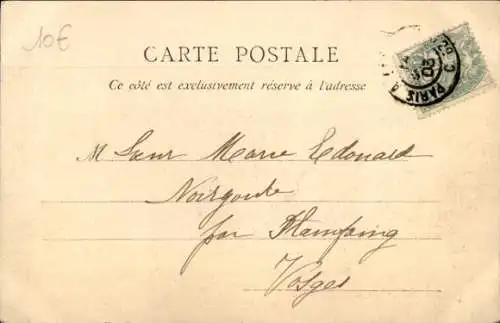 10€
CARTE POSTALE
Ce côté est exclusivement réservé à l'adresse
PARIS
03
M Sœur Marie Edouard
Noirgoute
par Plamfaing
Vosges